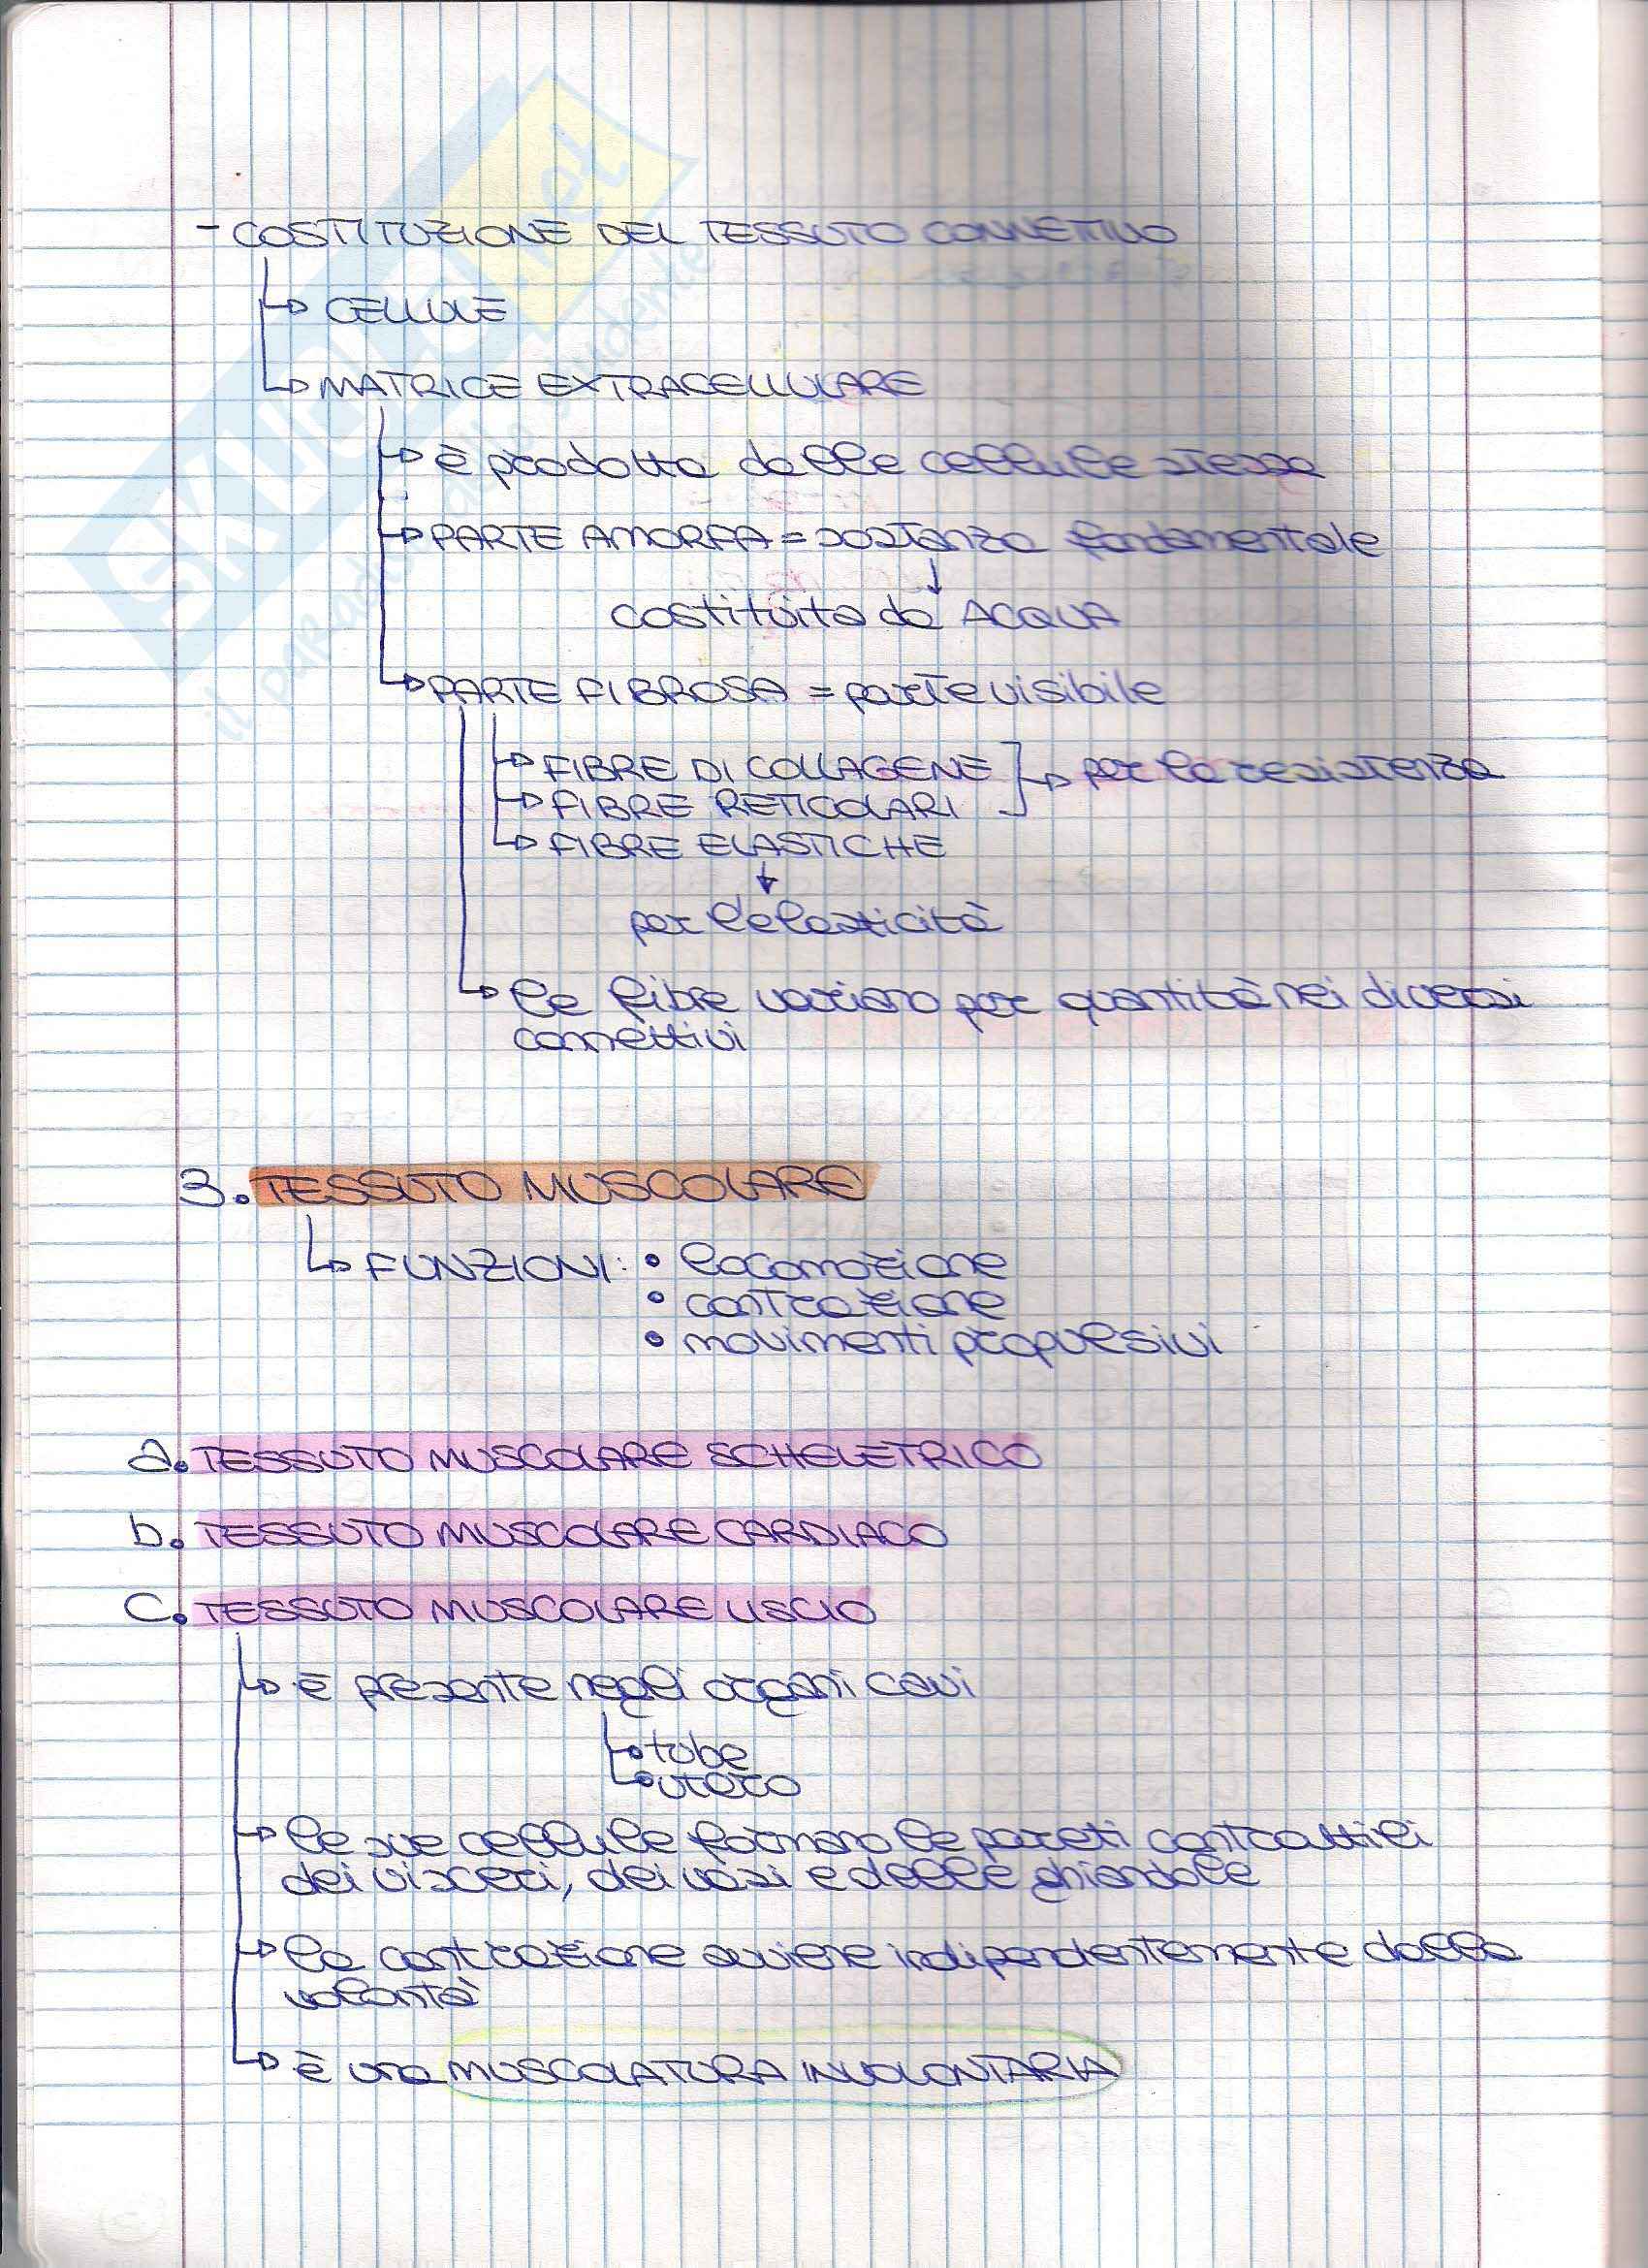 - COSTITUZIONE DEL TESSUTO CONNETTIVO
CELLULE
MATRICE EXTRACELLULARE
è prodotta dalle cellule stesse
PARTE AMORFA = sostanza fondamentale
costituita da ACQUA
PARTE FIBROSA = parte visibile
FIBRE DI COLLAGENE
per la resistenza
FIBRE RETICOLARI
FIBRE ELASTICHE
per l'elasticità
le fibre variano per quantità nei diversi
connettivi
3. TESSUTO MUSCOLARE
FUNZIONI: • locomozione
• contrazione
• movimenti propulsivi
a. TESSUTO MUSCOLARE SCHELETRICO
b. TESSUTO MUSCOLARE CARDIACO
c. TESSUTO MUSCOLARE LISCIO
è presente negli organi cavi
tube
utero
le sue cellule formano le pareti contrattili
dei visceri, dei vasi e delle ghiandole
la contrazione avviene indipendentemente dalla
volontà
è una MUSCOLATURA INVOLONTARIA
SKUOLA.net
il paradiso dello studente